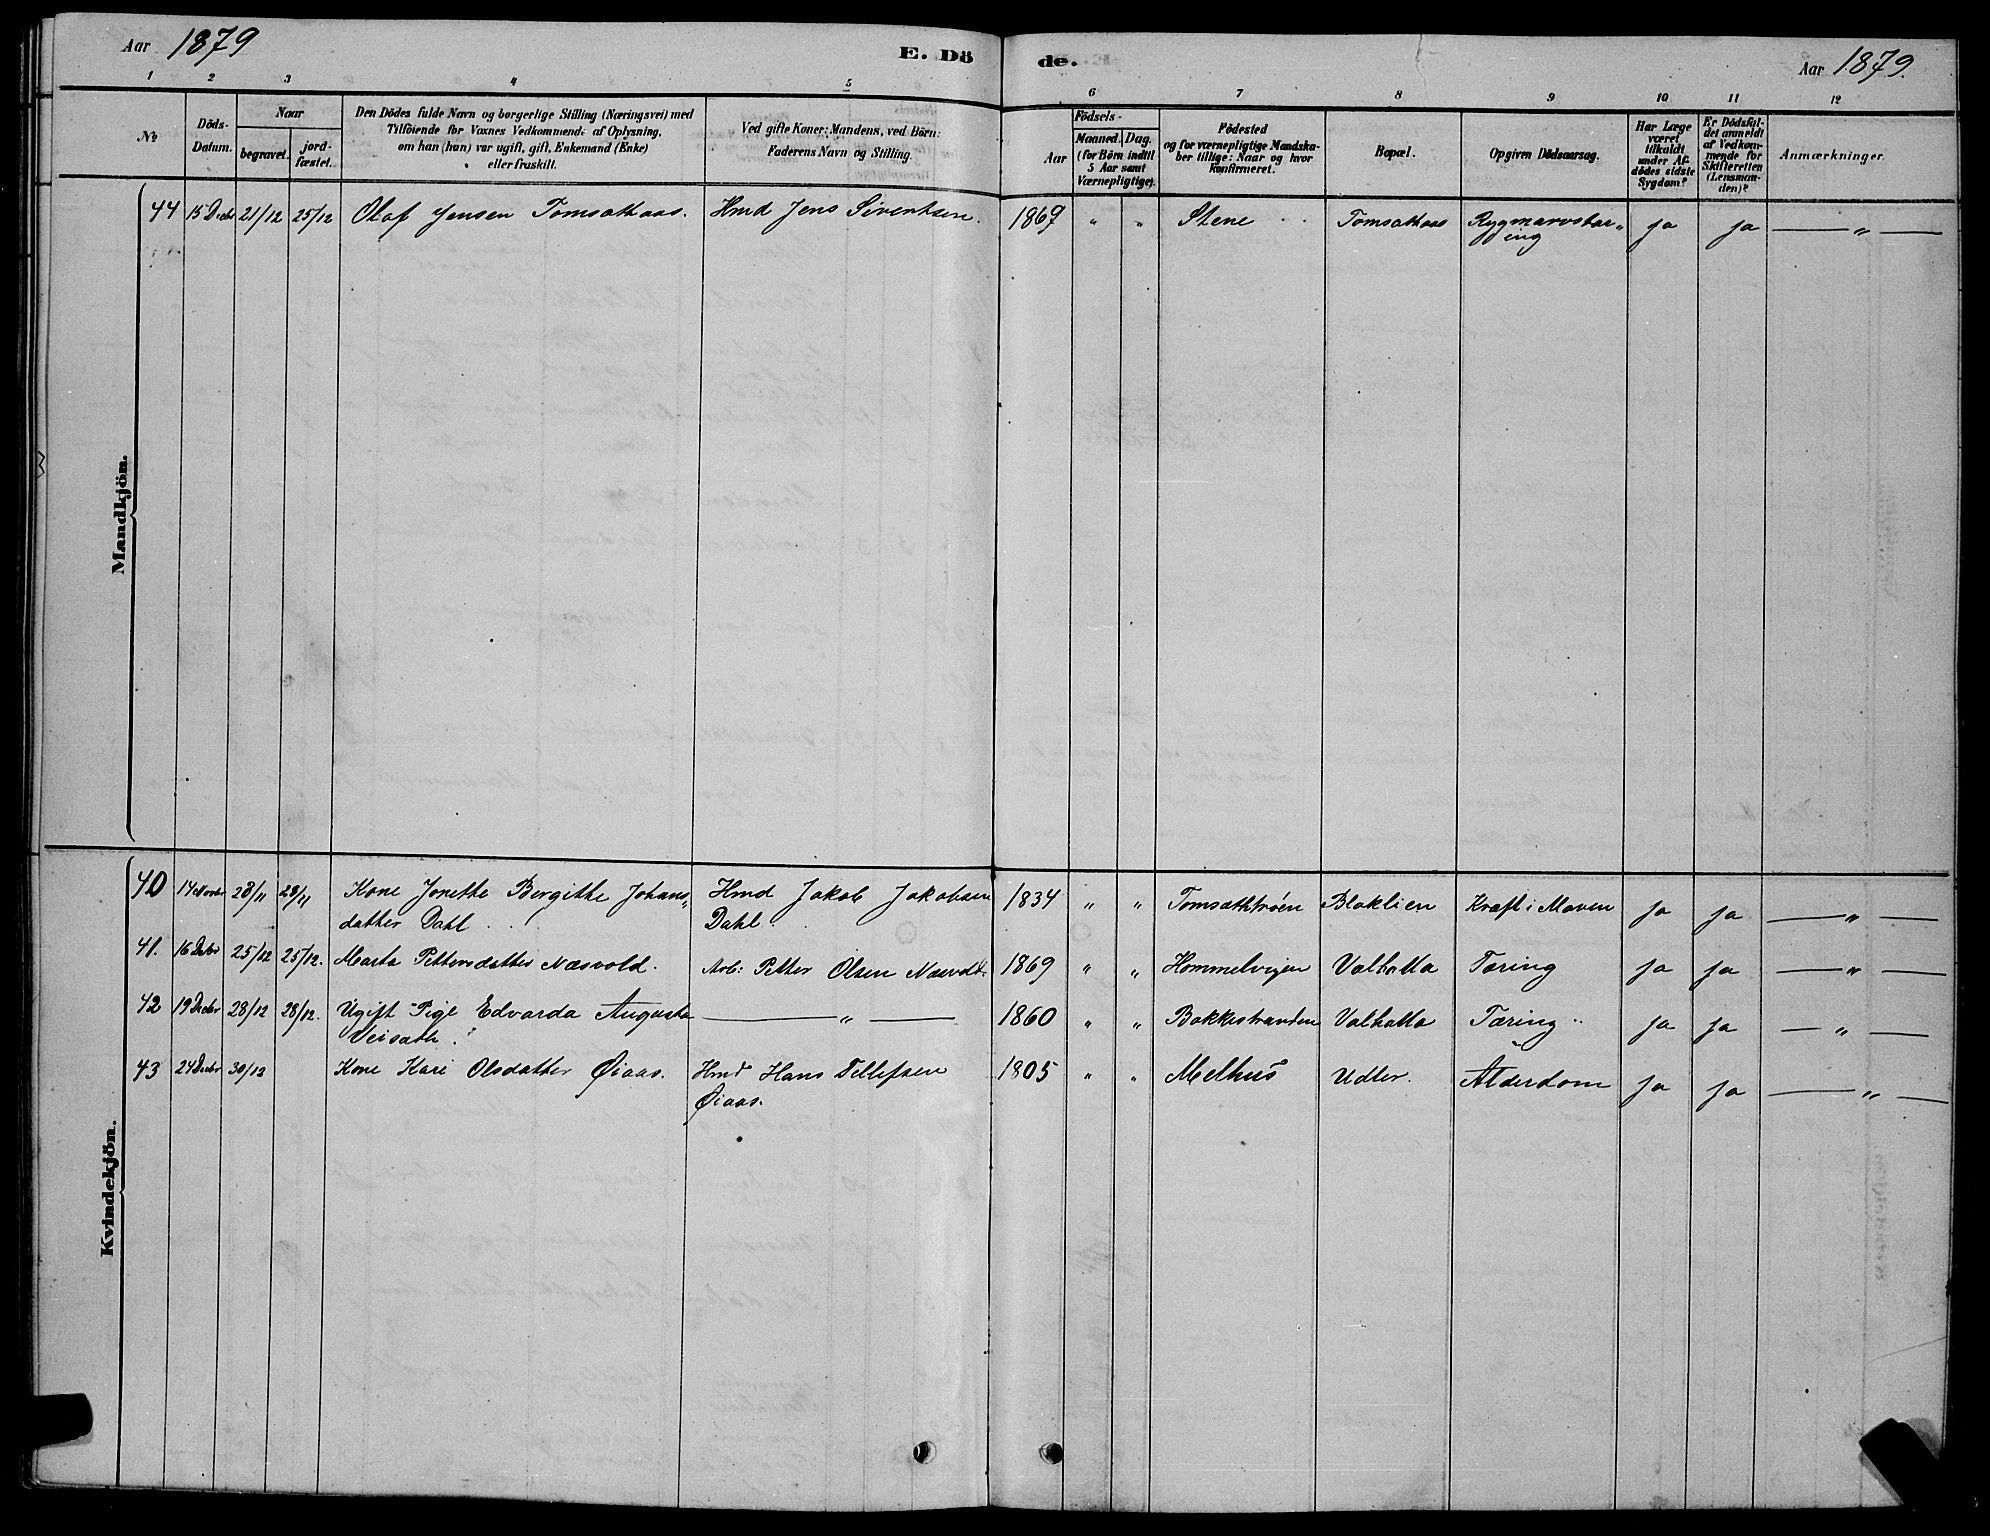 Aar 1879 E. Dö de. Aar 1879.
1 2 3 4 5 6 7 8 9 10 11 12
№
Döds-
Datum.
Naar
begravet.
jord-
fæstet.
Den Dödes fulde Navn og borgerlige Stilling (Næringsvei) med
Tilföiende for Voxnes Vedkommende af Oplysning,
om han (hun) var ugift, gift, Enkemand (Enke)
eller fraskilt.
Ved gifte Koner: Mandens, ved Börn:
Faderens Navn og Stilling.
Födsels-
Aar
Maaned.
Dag.
(for Börn indtil
5 Aar samt
Værnepligtige).
Födested
og for værnepligtige Mandska-
ber tillige: Naar og hvor
konfirmeret.
Bopæl.
Opgiven Dödsaarsag.
Har Læge
været
tilkaldt
under Af-
dödes sidste
Sygdom?
Er Dödsfal-
det anmeldt
af Vedkom-
mende for
Skifteretten
(Lensman-
den)?
Anmærkninger.
Mandkjön.
44 15 Decbr 21/12 25/12 Olaf Jensen Tomsathaas. Hmd Jens Sivertsen. 1869 " " Stene Tomsathaas Rygmarvstær„ ja ja — " —
ing
Kvindekjön.
40 14 Novbr 23/11 23/11 Kone Jonette Bergitte Johans„ Hmd Jakob Jakobsen 1834 " " Tomsathtröen Bloklien Kræft i Maven ja ja — " —
datter Dahl Dahl.
41. 16 Decbr 25/12 25/12. Marta Pettersdatter Næsvold. Arb: Petter Olsen Næsvold. 1869 " " Hommelvigen Valhalla Tæring ja ja — " —
42 19 Decbr 28/12 28/12. Ugift Pige Edvarda Augusta — " — 1860 " " Bakkestranden Valhalla Tæring " ja ja — " —
Veisath.
43 24 Decbr 30/12 Kone Kari Olsdatter Øiaas. Hmd Hans Dellefsen 1805 " " Melhus Udler. Alderdom ja ja — " —
Øiaas.